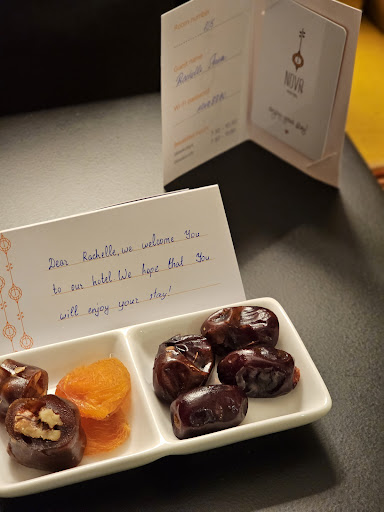 Room number
Guest name
Rachelle
Wi-Fi password
NOVR
enjoy your stay!
Dear Rachelle, we welcome You
to our hotel. We hope that You
will enjoy your stay!